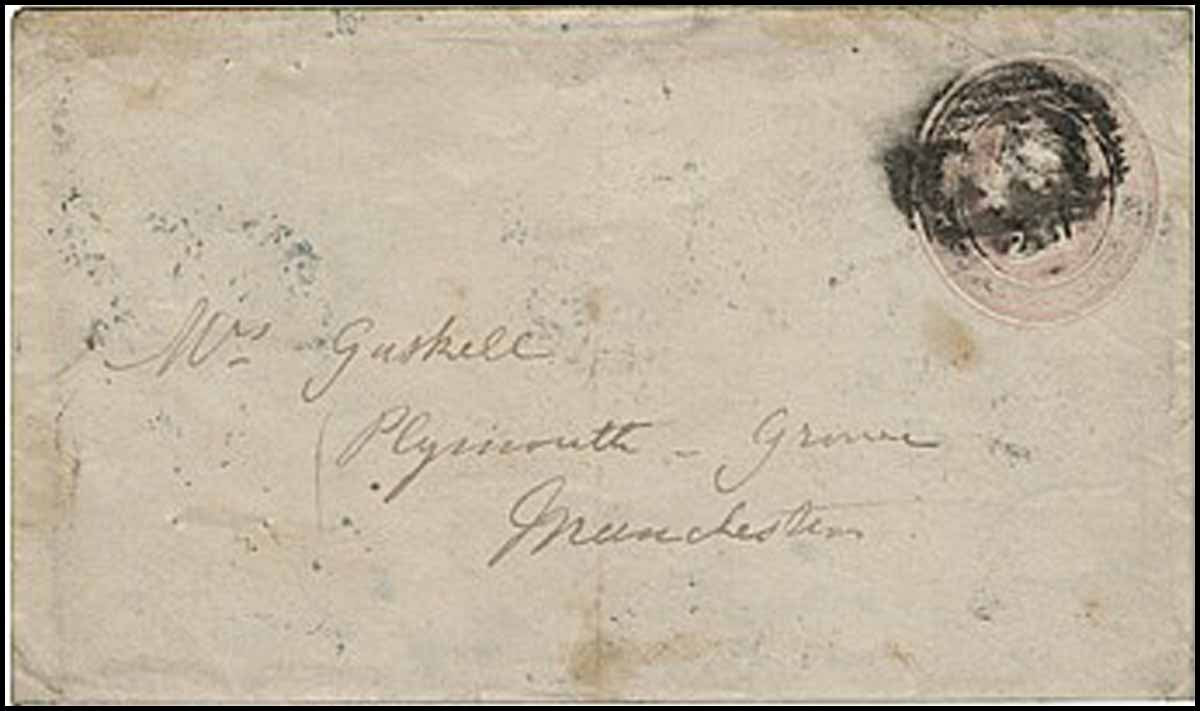 Mrs Gaskell
Plymouth - Grove
Manchester